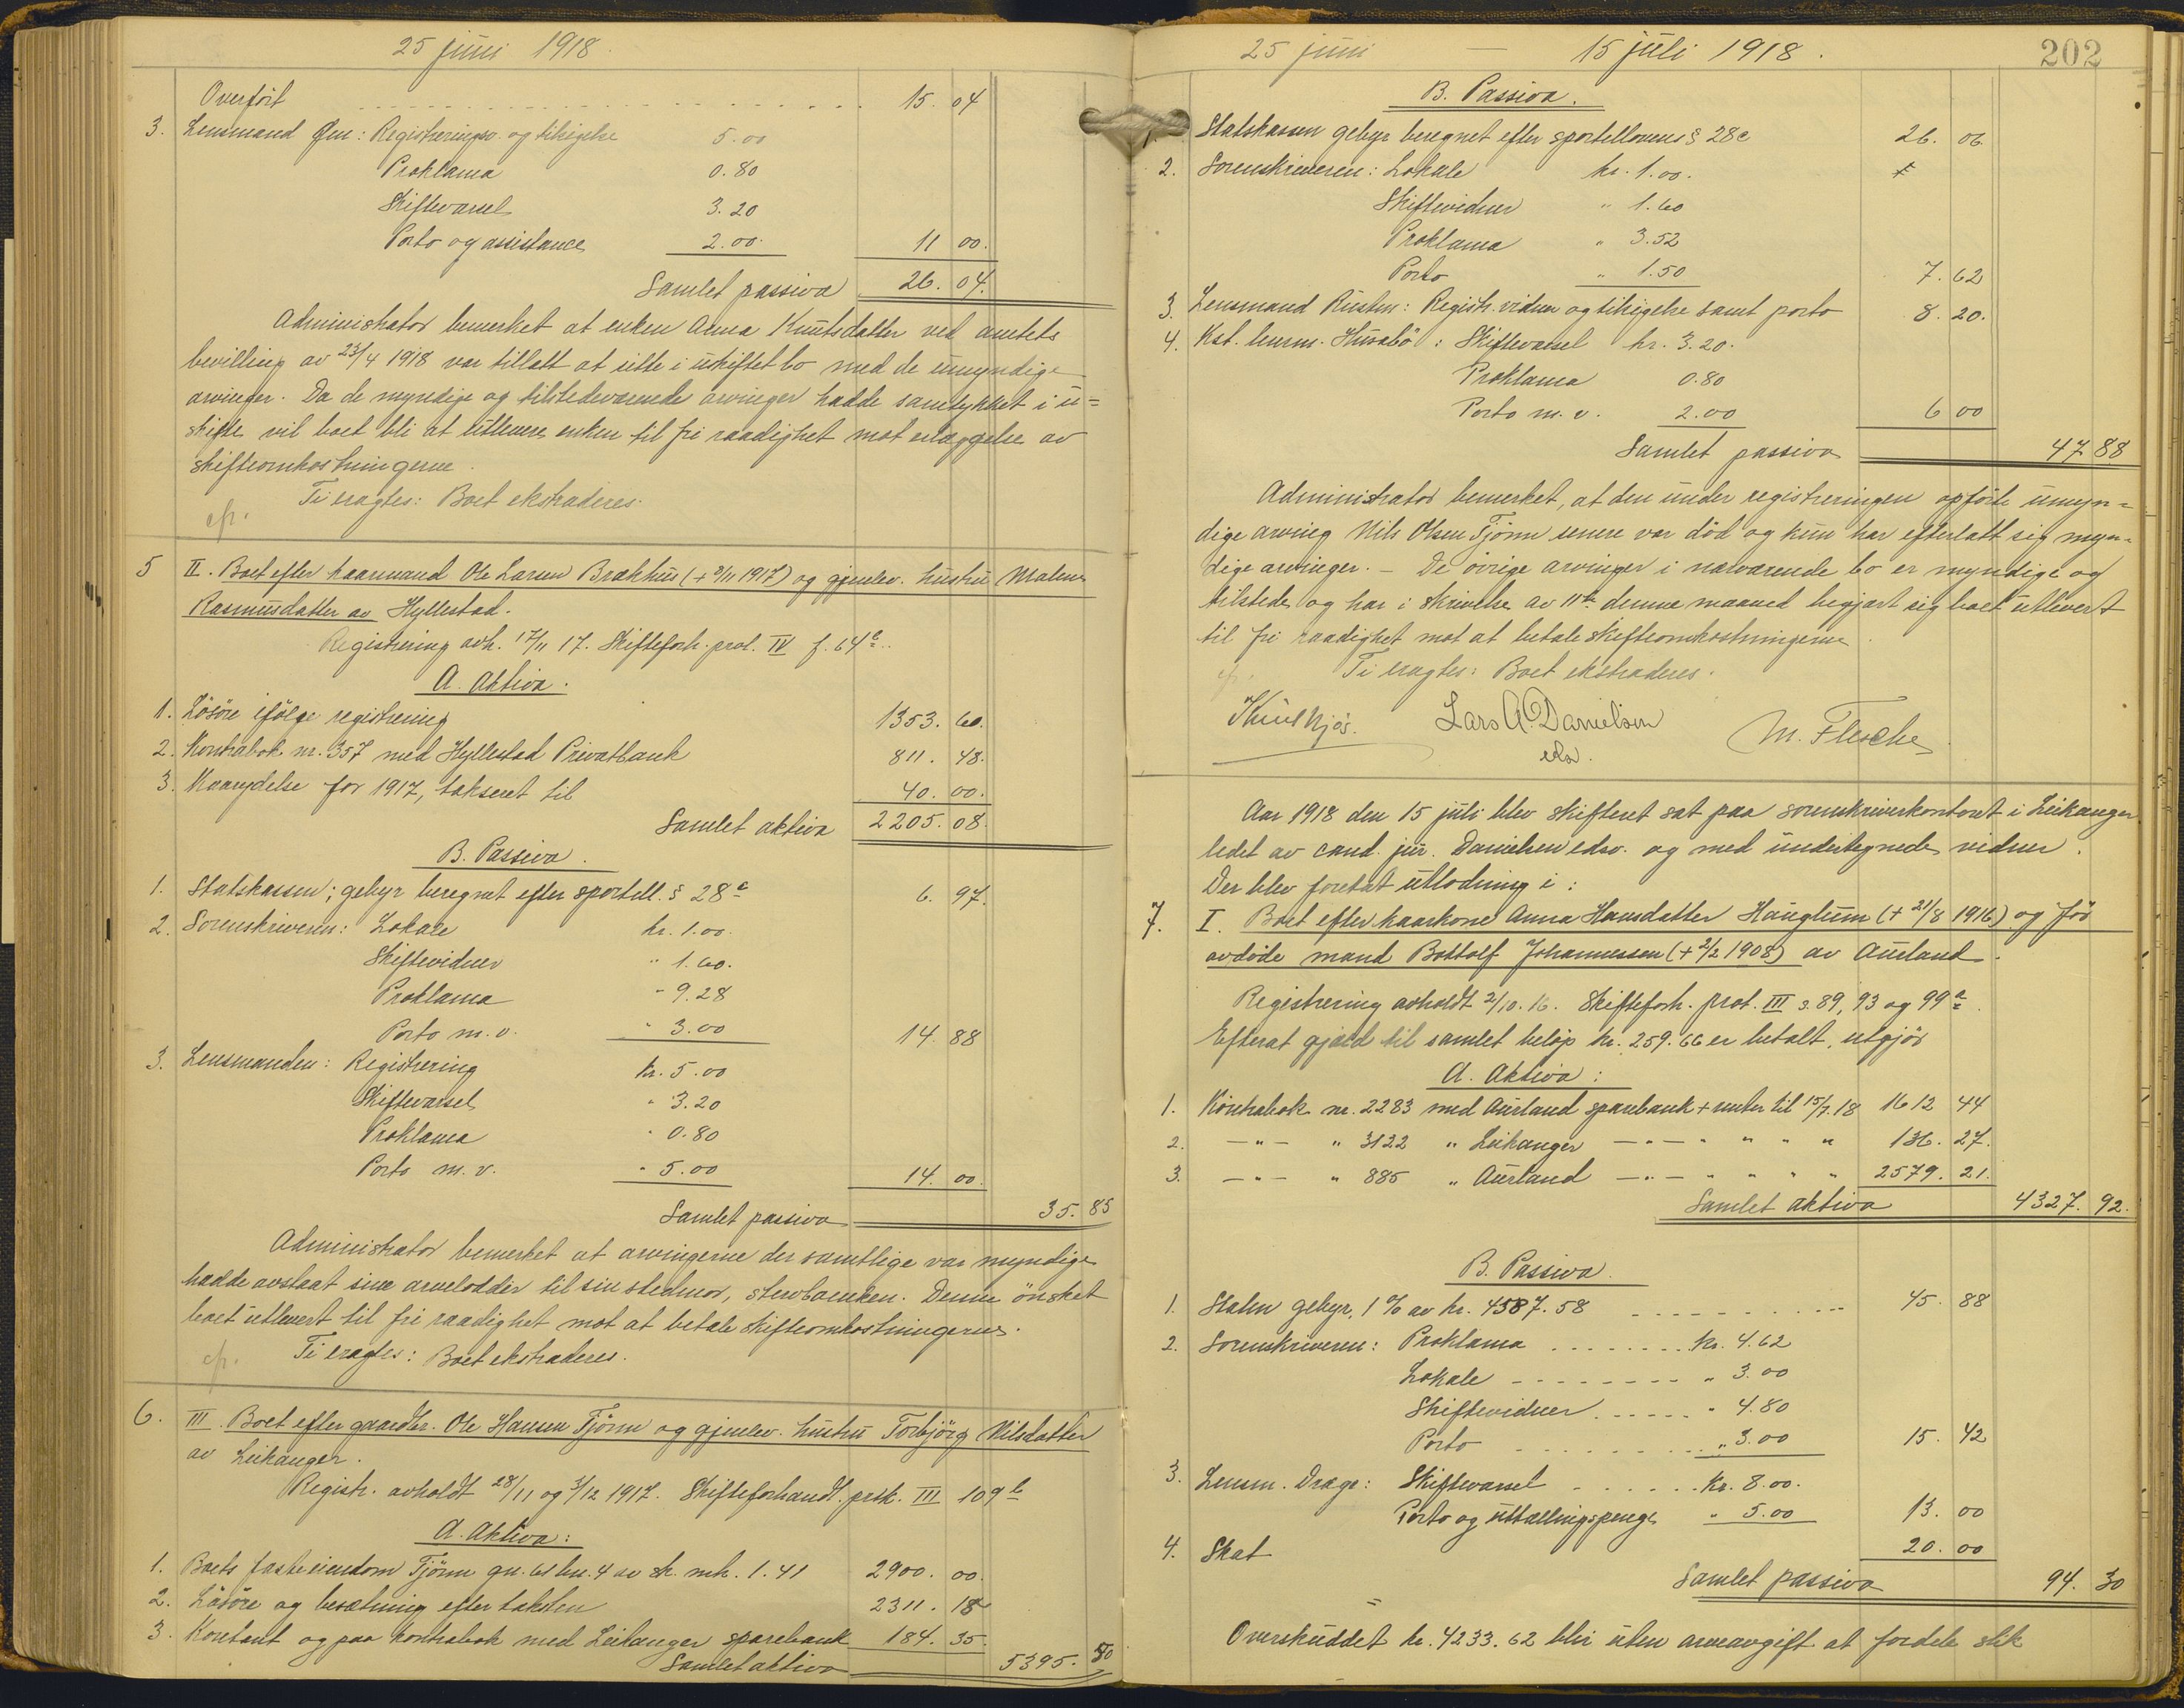 25 juni 1918.
Overført 15.04
3. Lensmand Øen: Registreringsv. og tilsigelse 5.00
Proklama 0.80
Skiftevarsel 3.20
Porto og assistance 2.00. 11 00.
Samlet passiva 26.04.
Administrator bemerket at enken Anna Knutsdatter ved amtets
bevilling av 23/4 1918 var tillatt at sitte i uskiftet bo med de umyndige
arvinger. Da de myndige og tilstedeværende arvinger hadde samtykket i u=
skifte vil boet bli at utlevere enken til fri raadighet mot erlæggelse av
skifteomkostningerne.
Ti eragtes: Boet ekstraderes.
cfr.
5 II. Boet efter kaarmand Ole Larsen Brækhus (+ 3/11 1917) og gjenlev. hustru Malene
Rasmusdatter av Hyllestad.
Registrering avh. 17/11 17. Skifteforh. prot. IV f. 64a.
A. Aktiva.
1. Løsøre ifølge registrering 1353.60.
2. Kontrabok nr. 357 med Hyllestad Privatbank 811.48.
3. Kaarydelse for 1917, takseret til 40.00.
Samlet aktiva 2205.08.
B. Passiva.
1. Statskassen; gebyr beregnet efter sportell. § 28a 6.97.
2. Sorenskriveren: Lokale kr. 1.00.
Skiftevidner " 1.60.
Proklama " 9.28
Porto m.v. " 3.00 14.88
3. Lensmanden: Registrering kr. 5.00
Skiftevarsel " 3.20
Proklama " 0.80
Porto m.v. " 5.00 14.00.
Samlet passiva 35.85
Administrator bemerket at arvingerne der samtlige var myndige
hadde avstaat sine arvelodder til sin stedmor, stervboenken. Denne ønsket
boet utlevert til fri raadighet mot at betale skifteomkostningerne.
cfr. Ti eragtes: Boet ekstraderes.
6. III. Boet efter gaardbr. Ole Hansen Tjønn og gjenlev. hustru Torbjørg Nilsdatter
av Leikanger.
Registr. avholdt 28/11 og 3/12 1917. Skifteforhandl. prtk. III 109b
A. Aktiva:
1. Boets faste eiendom Tjønn gn. 61 bn. 4 av sk. mrk. 1.41 2900.00.
2. Løsøre og besætning efter taksten 2311.15
3. Kontant og paa kontrabok med Leikanger sparebank 184.35.
Samlet aktiva 5395.50
25 juni — 15 juli 1918. 202
B. Passiva.
1. Statskassen gebyr beregnet efter sportellovens § 28c 26.06.
2. Sorenskriveren: Lokale kr. 1.00.
Skiftevidner " 1.60
Proklama " 3.52
Porto " 1.50 7.62
3. Lensmand Rusten: Registr. vidner og tilsigelse samt porto 8.20.
4. Kst. lensm. Husabø: Skiftevarsel kr. 3.20.
Proklama 0.80
Porto m.v. 2.00 6 00
Samlet passiva 47 88
Administrator bemerket, at den under registreringen opførte umyn=
dige arving Nils Olsen Tjønn senere var død og kun har efterlatt sig myn=
dige arvinger. – De øvrige arvinger i nærværende bo er myndige og
tilstede og har i skrivelse av 11te denne maaned begjært sig boet utlevert
til fri raadighet mot at betale skifteomkostningerne.
cfr. Ti eragtes: Boet ekstraderes.
Knut Njøs. Lars A. Danielsen M. Flesche
eds.
Aar 1918 den 15 juli blev skifteret sat paa sorenskriverkontoret i Leikanger
ledet av cand. jur. Danielsen edsv. og med undertegnede vidner.
Der blev foretat utlodning i:
7. I. Boet efter kaarkone Anna Hansdatter Hauglum (+ 21/8 1916) og før
avdøde mand Bottolf Johannessen (+ 2/2 1908) av Aurland.
Registrering avholdt 2/10.16. Skifteforh. prot. III s. 89, 93 og 99a.
Efterat gjæld til samlet beløp kr. 259.66 er betalt, utgjør
A. Aktiva:
1. Kontrabok nr. 2283 med Aurland sparebank + renter til 15/7.18 1612 44
2. —"— " 3122 " Leikanger —"— " " " " 136.27.
3. —"— " 885 " Aurland —"— " " " " 2579.21.
Samlet aktiva 4327.92.
B. Passiva.
1. Staten gebyr, 1 % av kr. 4587.58 45.88
2. Sorenskriveren: Proklama kr. 4.62
Lokale " 3.00
Skiftevidner " 4.80
Porto " 3.00 15.42
3. Lensm. Drage: Skiftevarsel kr. 8.00.
Porto og uttællingspenge " 5.00 13.00
4. Skat 20.00
Samlet passiva 94.30
Overskuddet kr. 4233.62 blir uten arveavgift at fordele slik